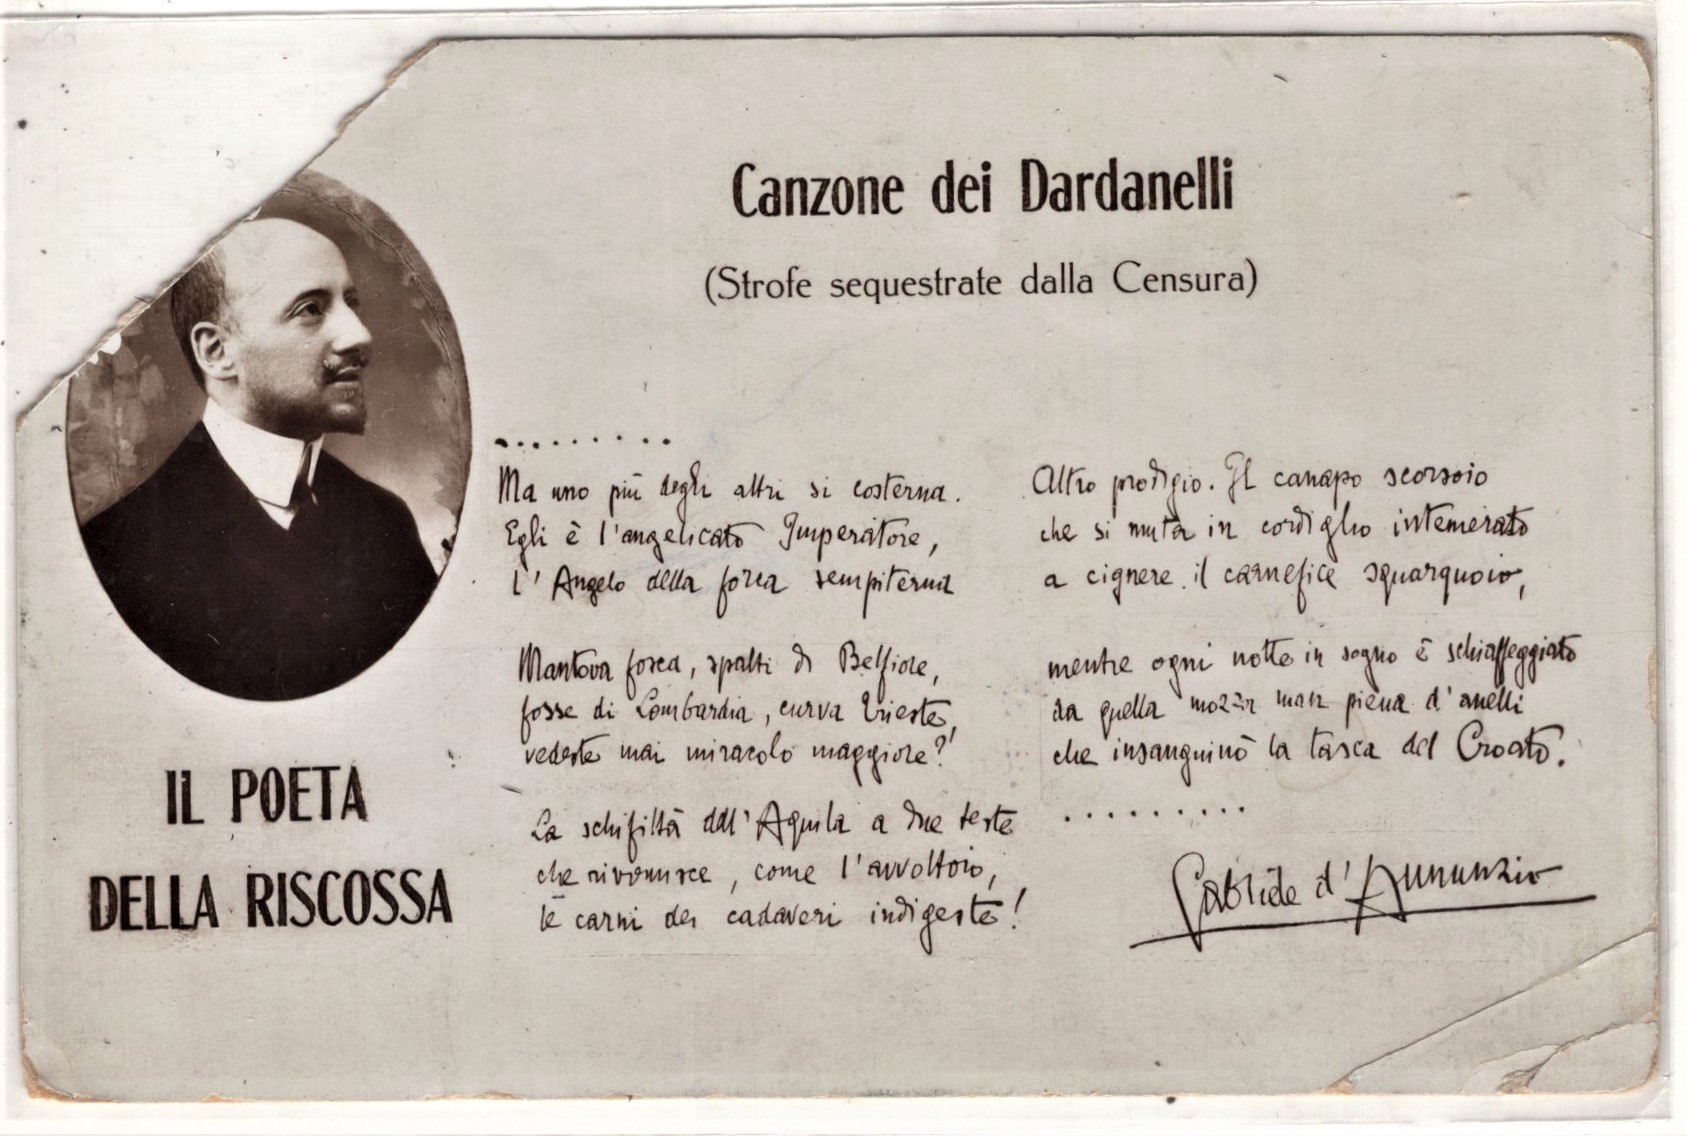 Canzone dei Dardanelli
(Strofe sequestrate dalla Censura)
IL POETA
DELLA RISCOSSA
.........
Ma uno più degli altri si costerna.
Egli è l'angelicato Imperatore,
l'Angelo della forca sempiterna
Mantova fosca, spalti di Belfiore,
fosse di Lombardia, curva Trieste,
vedeste mai miracolo maggiore?
La schifiltà dell'Aquila a due teste
che rivomisce, come l'avvoltoio,
le carni dei cadaveri indigeste!
Altro prodigio. Il canapo scorsoio
che si muta in cordiglio intemerato
a cignere il carnefice squarquoio,
mentre ogni notte in sogno è schiaffeggiato
da quella mozza man piena d'anelli
che insanguinò la tasca del Croato.
.........
Gabriele d'Annunzio